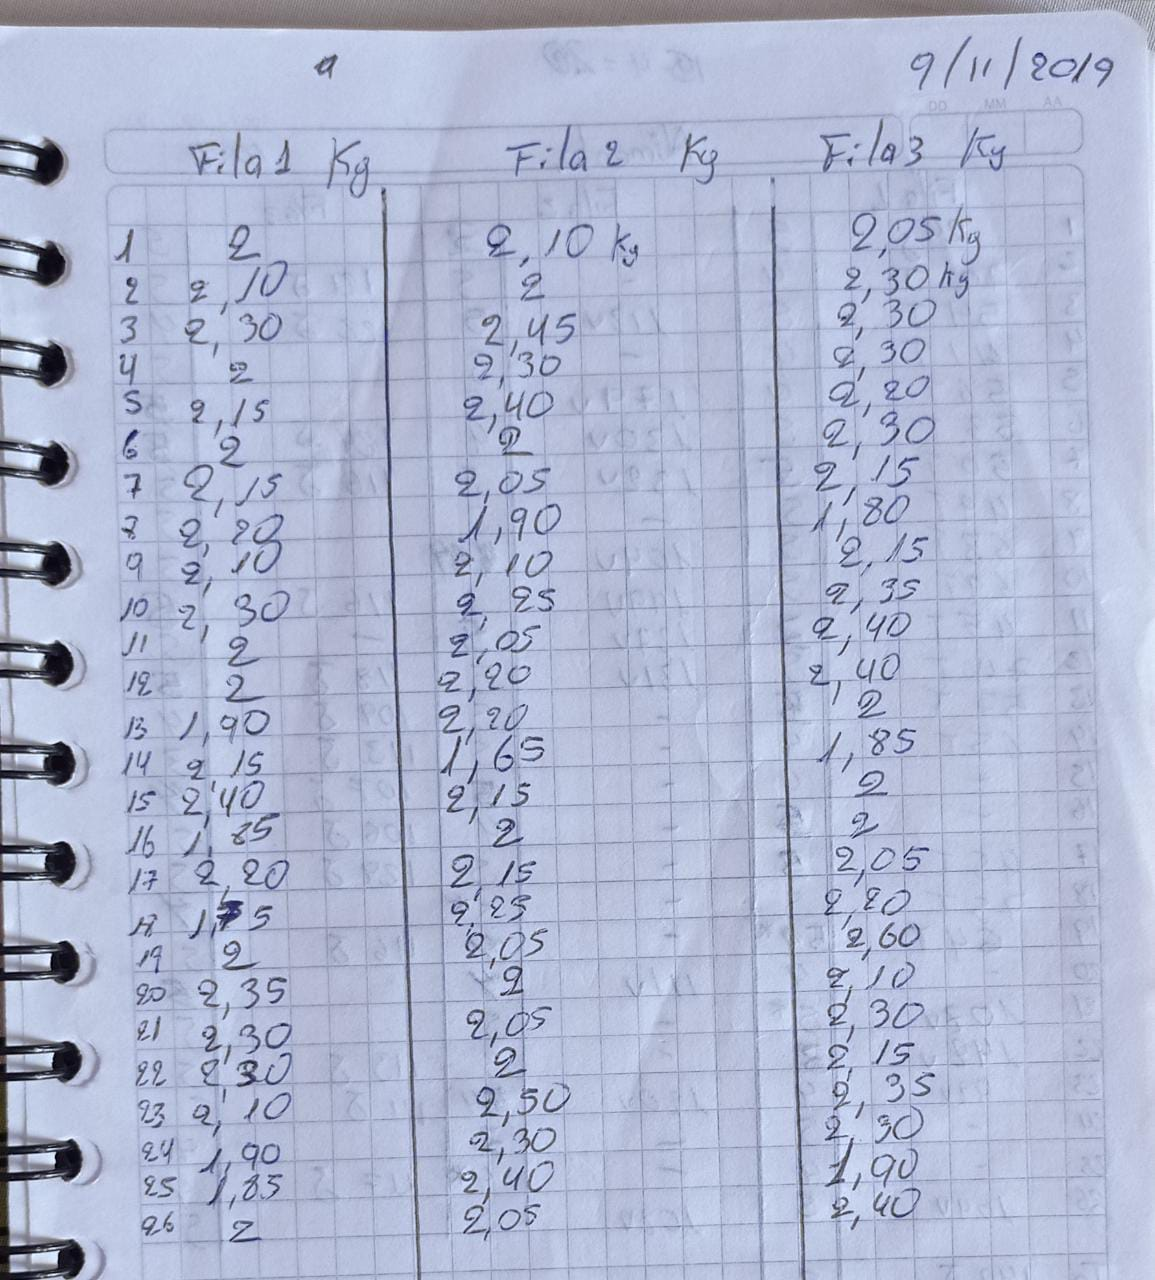 9/11/2019
Fila 1 Kg Fila 2 Kg Fila 3 Kg
1 2 2,10 Kg 2,05 Kg
2 2,10 2 2,30 Kg
3 2,30 2,45 2,30
4 2 2,30 2,30
5 2,15 2,40 2,20
6 2 2 2,30
7 2,15 2,05 2,15
8 2,20 1,90 1,80
9 2,10 2,10 2,15
10 2,30 2,25 2,35
11 2 2,05 2,40
12 2 2,20 2,40
13 1,90 2,20 2
14 2,15 1,65 1,85
15 2,40 2,15 2
16 1,85 2 2
17 2,20 2,15 2,05
18 1,75 2,25 2,20
19 2 2,05 2,60
20 2,35 2 2,10
21 2,30 2,05 2,30
22 2,30 2 2,15
23 2,10 2,50 2,35
24 1,90 2,30 2,30
25 1,85 2,40 1,90
26 2 2,05 2,40